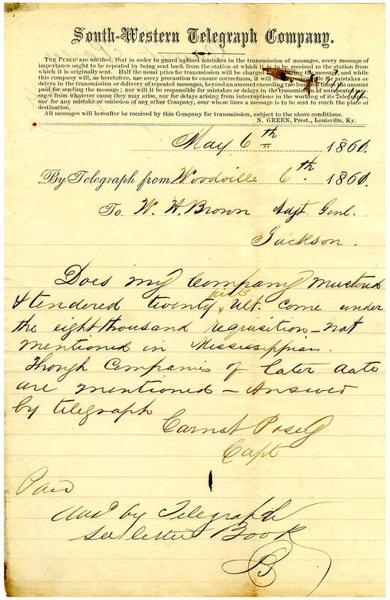 South-Western Telegraph Company.
The Public are notified, that in order to guard against mistakes in the transmission of messages, every message of
importance ought to be repeated by being sent back from the station at which it is to be received to the station from
which it is originally sent. Half the usual price for transmission will be charged for repeating the message, and while
this company will, as heretofore, use every precaution to ensure correctness, it will not be responsible for mistakes or
delays in the transmission or delivery of repeated messages, beyond an amount exceeding two hundred times the amount
paid for sending the message; nor will it be responsible for mistakes or delays in the transmission of unrepeated mes-
sages from whatever cause they may arise, nor for delays arising from interruptions in the working of its Telegraph,
nor for any mistake or omission of any other Company, over whose lines a message is to be sent to reach the place of
destination.
All messages will hereafter be received by this Company for transmission, subject to the above conditions.
N. GREEN, Prest., Louisville, Ky.
May 6th 1861.
By Telegraph from Woodville 6th. 1861.
To W. H. Brown Adjt Genl.
Jackson.
Does my Company Mustered
& tendered twenty fifth Ult. Come under
the eight thousand requisition - not
mentioned in Mississippian.
Though Companies of later date
are mentioned - Answer
by telegraph
Carnot Posey
Capt
Paid
Ansd by Telegraph
See letter Book
B